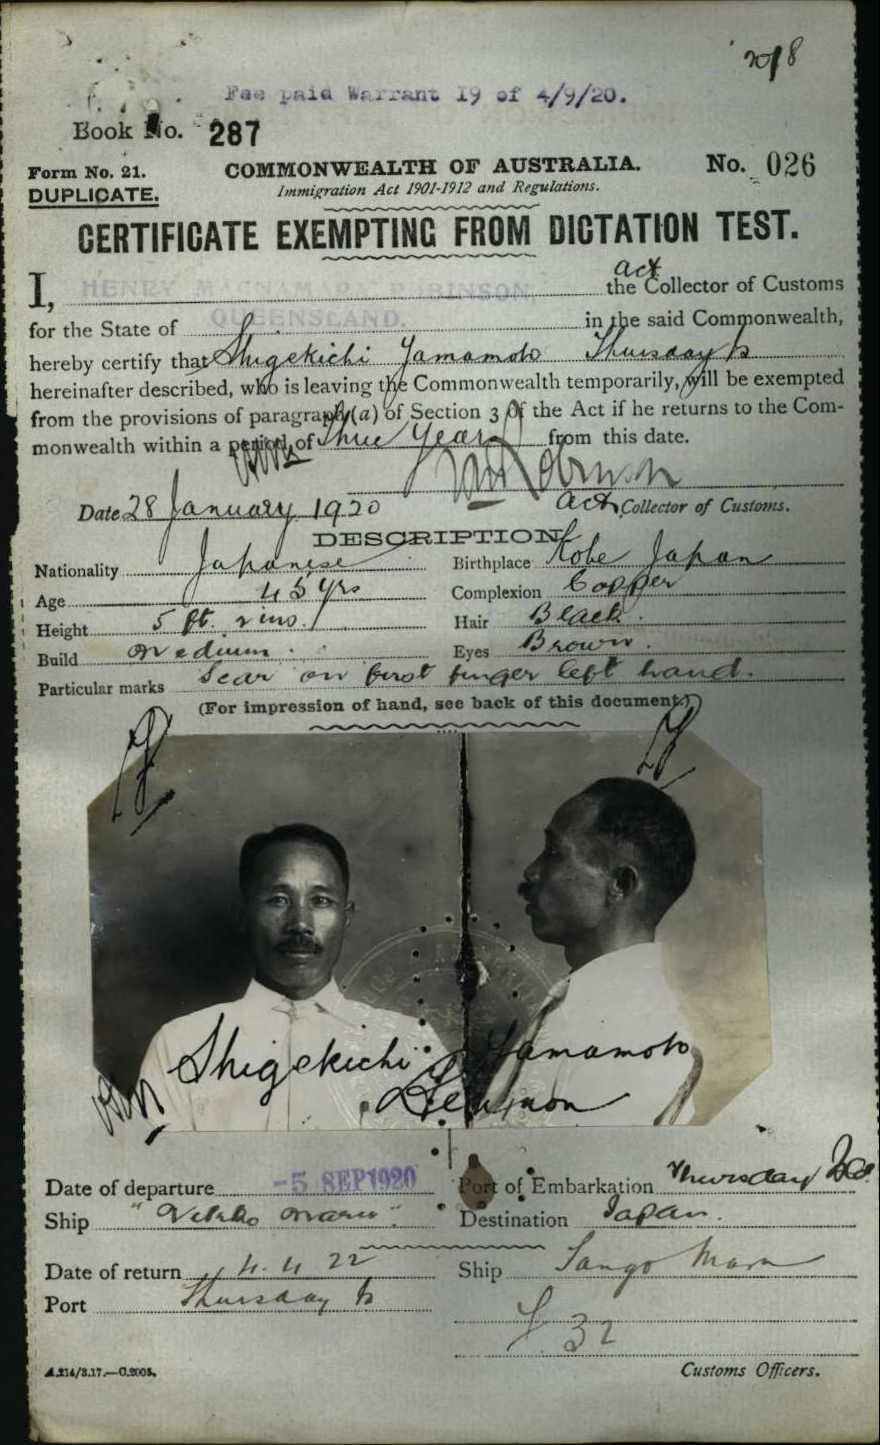 Fee paid Warrant 19 of 4/9/20.
Book No. 287
Form No. 21. COMMONWEALTH OF AUSTRALIA. No. 026
DUPLICATE. Immigration Act 1901-1912 and Regulations.
CERTIFICATE EXEMPTING FROM DICTATION TEST.
act
I, HENRY MACNAMARA ROBINSON, the Collector of Customs
QUEENSLAND.
for the State of in the said Commonwealth,
hereby certify that Shigekichi Yamamoto Thursday Is
hereinafter described, who is leaving the Commonwealth temporarily, will be exempted
from the provisions of paragraph (a) of Section 3 of the Act if he returns to the Com-
monwealth within a period of Three Years from this date.
Date 28 January 1920 Act Collector of Customs.
DESCRIPTION.
Nationality Japanese Birthplace Kobe Japan
Age 45 yrs Complexion Copper
Height 5 ft. 2 ins. Hair Black.
Build medium. Eyes Brown.
Particular marks Scar on first finger left hand.
(For impression of hand, see back of this document.)
Shigekichi Yamamoto
Date of departure -5 SEP 1920 Port of Embarkation Thursday Isd.
Ship "Nikko Maru". Destination Japan.
Date of return 4. 4 22 Ship Tango Maru
Port Thursday Is
32
A.214/3.17.—C.2005. Customs Officers.